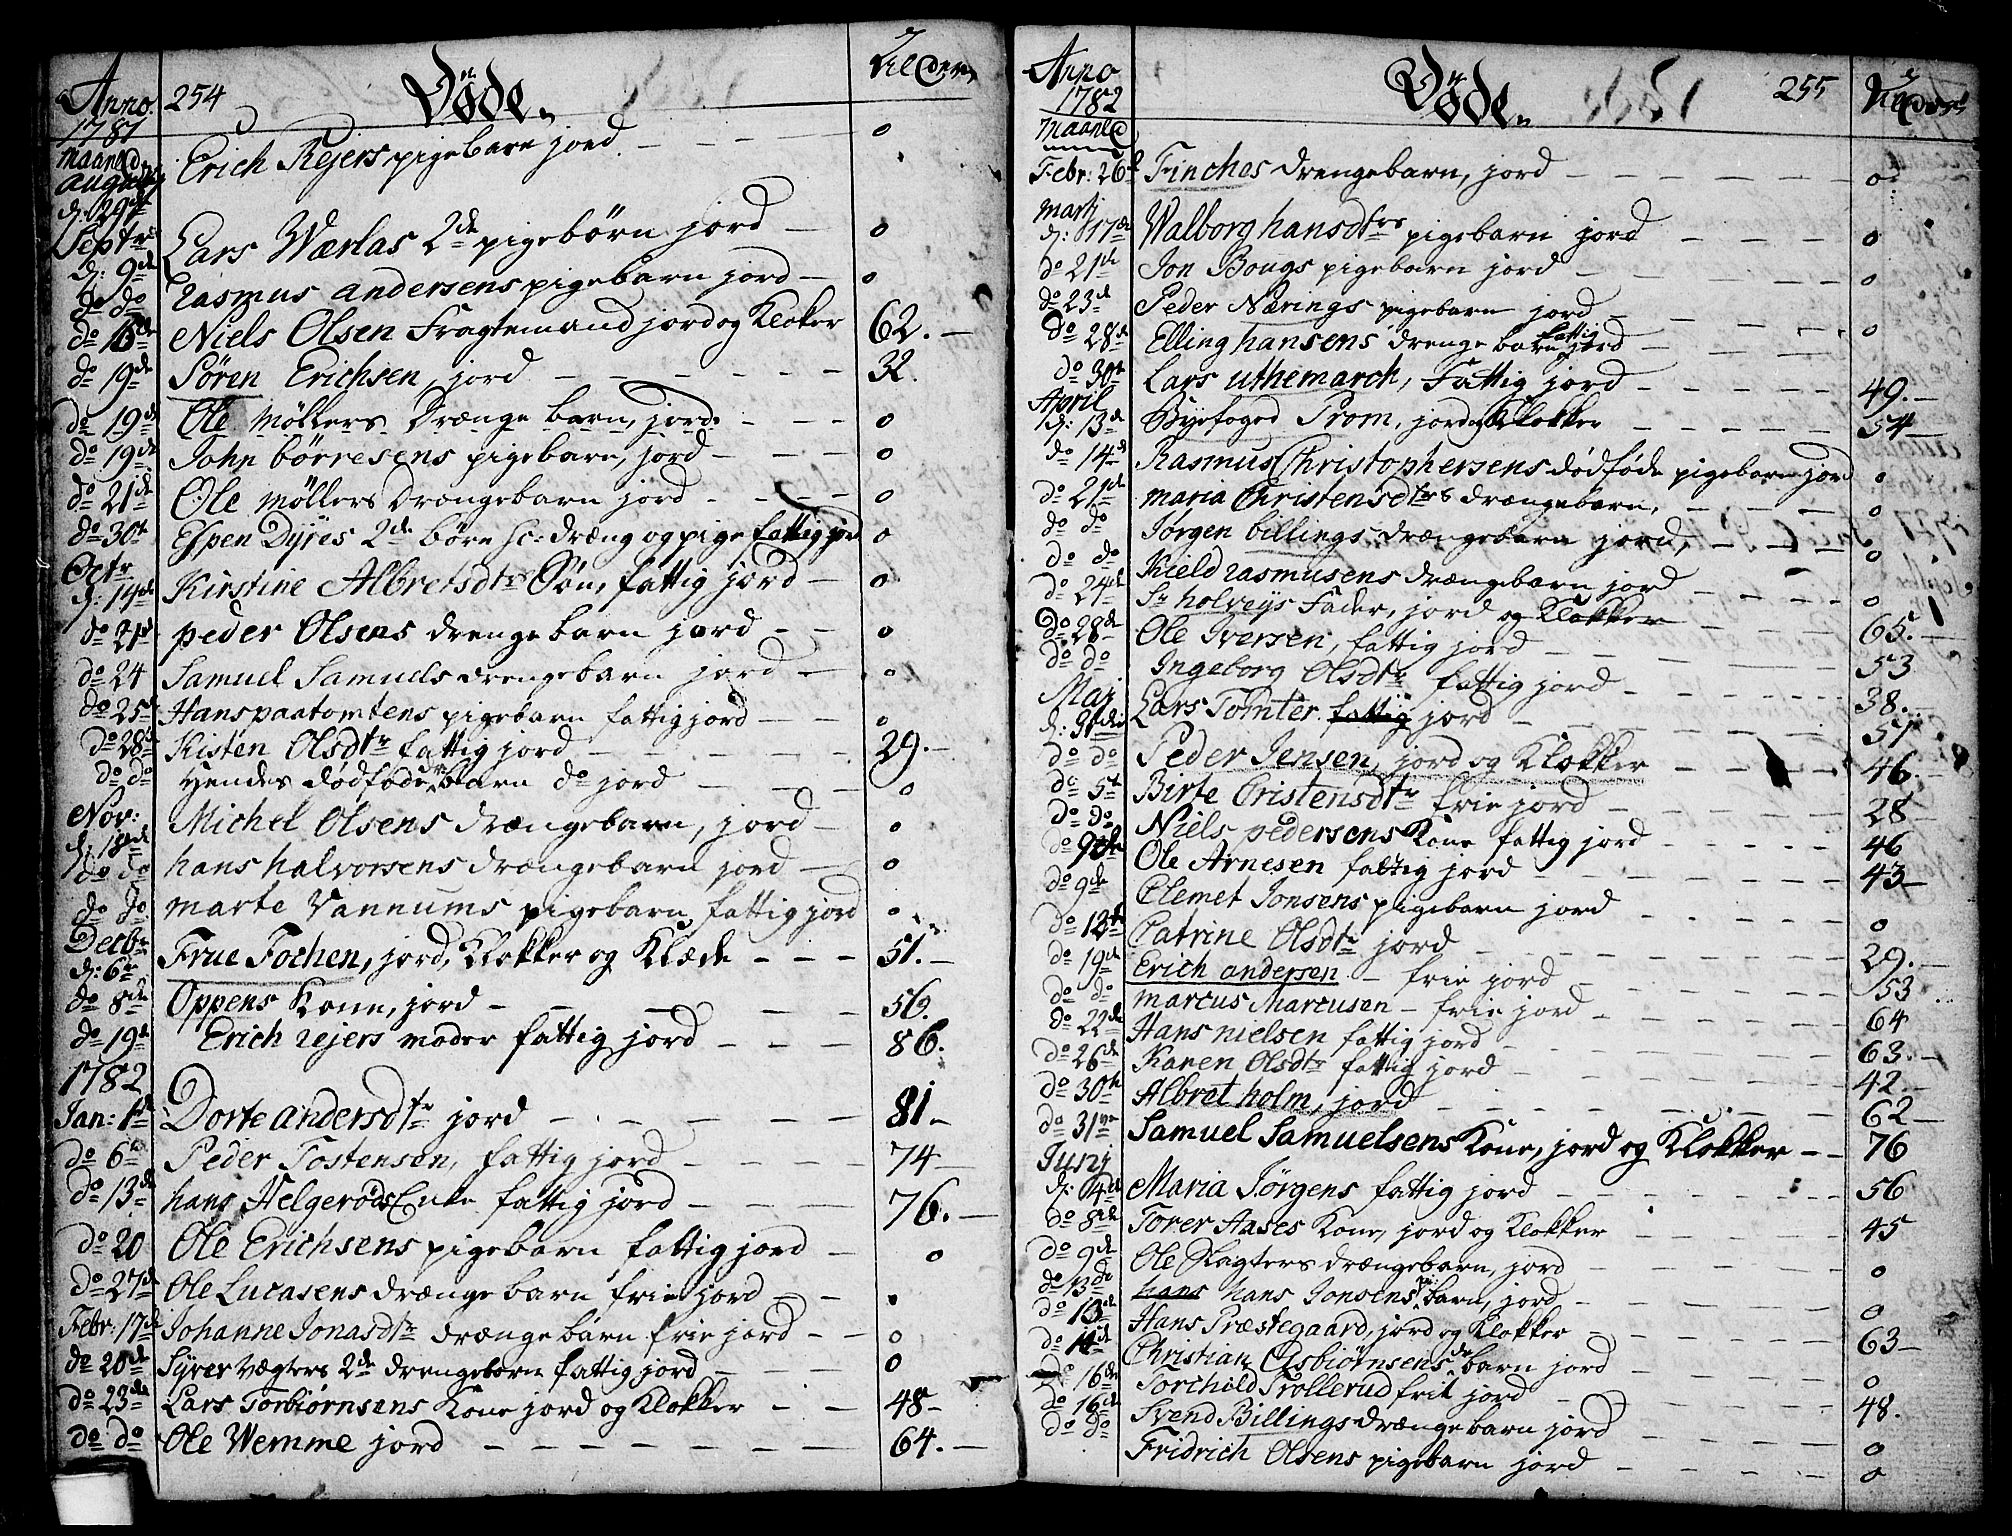 Anno 254 Døde
1781
Maaned
August
d: 29de Erich Rejers pigebarn jord - - - 0
Septr
d: 9de Lars Wærlas 2de pigebørn jord - 0
do do Rasmus Andersens pigebarn jord - 0
do 16de Niels Olsen Fragtemand jord og Klokker 62. -
do 19de Søren Erichsen, jord - - - 32.
do 19de Ole Møllers Drænge barn, jord. - - - 0
do 19de John børresens pigebarn, jord - - - 0
do 21de Ole Møllers Drængebarn jord - - - 0
do 30t Espen Dyres 2de børn sc: dræng og pige fattig jord 0
Octr
d: 14de Kirstine Albretsdtr Søn, fattig jord - 0
do 21de peder Olsens drenge barn jord - - 0
do 24 Samuel Samuels drengebarn jord - 0
do 25 Hans paatomtens pigebarn fattig jord - - 0
do 28de Kisten Olsdtr fattig jord - - - 29. -
do do Hendes dødføde barn do jord - - - 0
Nov:
d. 18de Michel Olsens drængebarn, jord - 0
do do hans halvorsens drængebarn jord - 0
do do Marte Vannums pigebarn fattig jord 0
Decbr
d: 6te Frue Fochen, jord, Klokker og Klæde - - - 51. -
do 8de Oppens Kone, jord - - - 56.
do 19de Erich rejers moder fattig jord - - - 86.
1782
Jan: 1de Dorte andersdtr jord - - - 81 -
do 6te Peder Tostensen, fattig jord - - - 74 -
do 13de hans Helgerøds Enke fattig jord - - - 76. -
do 20 Ole Erichsens pigebarn fattig jord - 0
do 27de Ole Lucasens drænge barn frie jord - -
Febr: 17de Johanne Jonasdtr drænge barn frie jord - - 0
do 20de Syver Vægters 2de drengebørn fattig jord - - 0
do 23de Lars Torbiørnsens Kone jord og Klokker - - 48 -
do do Ole Wemme jord - - - 64. -
Anno Døde 255
1782
Maaned
Febr: 26de Finches drengebarn, jord - - - 0
Martj
d: 17de Walborg hansdtrs pigebarn jord - - - 0
do 21de Jon Bougs pigebarn jord - 0
do 23de Peder Nærings pigebarn jord - - - 0
do 28de Elling hansens drenge barn fattig jord - - -
do 30te Lars uthemarch, Fattig jord - - - 49. -
April
d: 13de Byefoged Prom, jord og Klokker - - - 54 -
do 14de Rasmus Christophersens dødføde pigebarn jord 0
do 21de Maria Christensdtrs drængebarn, - - - 0
do do Jørgen billings drængebarn jord, - - - 0
do do Kield rasmusens drængebarn jord - - - 0
do 24de Sr holveys Fader, jord og Klokker 65. -
do 28de Ole Iversen, fattig jord - - - 53
do do Ingeborg Olsdtr fattig jord - - - 38. -
Maj
d: Lars Tomter fattig jord - - - 51
do do Peder Jensen, jord og Klokker - - - 46. -
do 5te Birte Cristensdtr frie jord - - - 28 -
do do Niels pedersens Kone fattig jord - - - 46
do 9de Ole Arnesen fattig jord - - - 43 -
do 9de Clemet Jonsens pigebarn jord - - - 0
do 12te Catrine Olsdtr jord - - - 29. -
do 19de Erich andersen - frie jord - - - 53
do do Marcus Marcusen - frie jord - - - 64
do 22de Hans nielsen fattig jord - - - 63. -
do 26de Karen Olsdtr fattig jord - - - 42. -
do 30te Albret holm, jord - - - 62 -
do 31 Samuel Samuelsens Kone, jord og Klokker - - 76
Junj
d: 4de Maria Jørgens fattig jord - - - 56
do 8de Torer Aases Kone, jord og Klokker - - - 45
do 9de Ole Slagters drængebarn, jord - - - 0
do 13de hans hans Jonsens barn, jord - - - 0
do 13de Hans Præstegaard, jord og Klokker - - - 63 -
do Christian Asbiørnsens barn jord - - - 0
do 16de Torchild Trollerud frit jord - - - 48.
do 16de Svend Billings drængebarn jord - - - 0
do do Fridrich Olsens pigebarn jord - - - 0